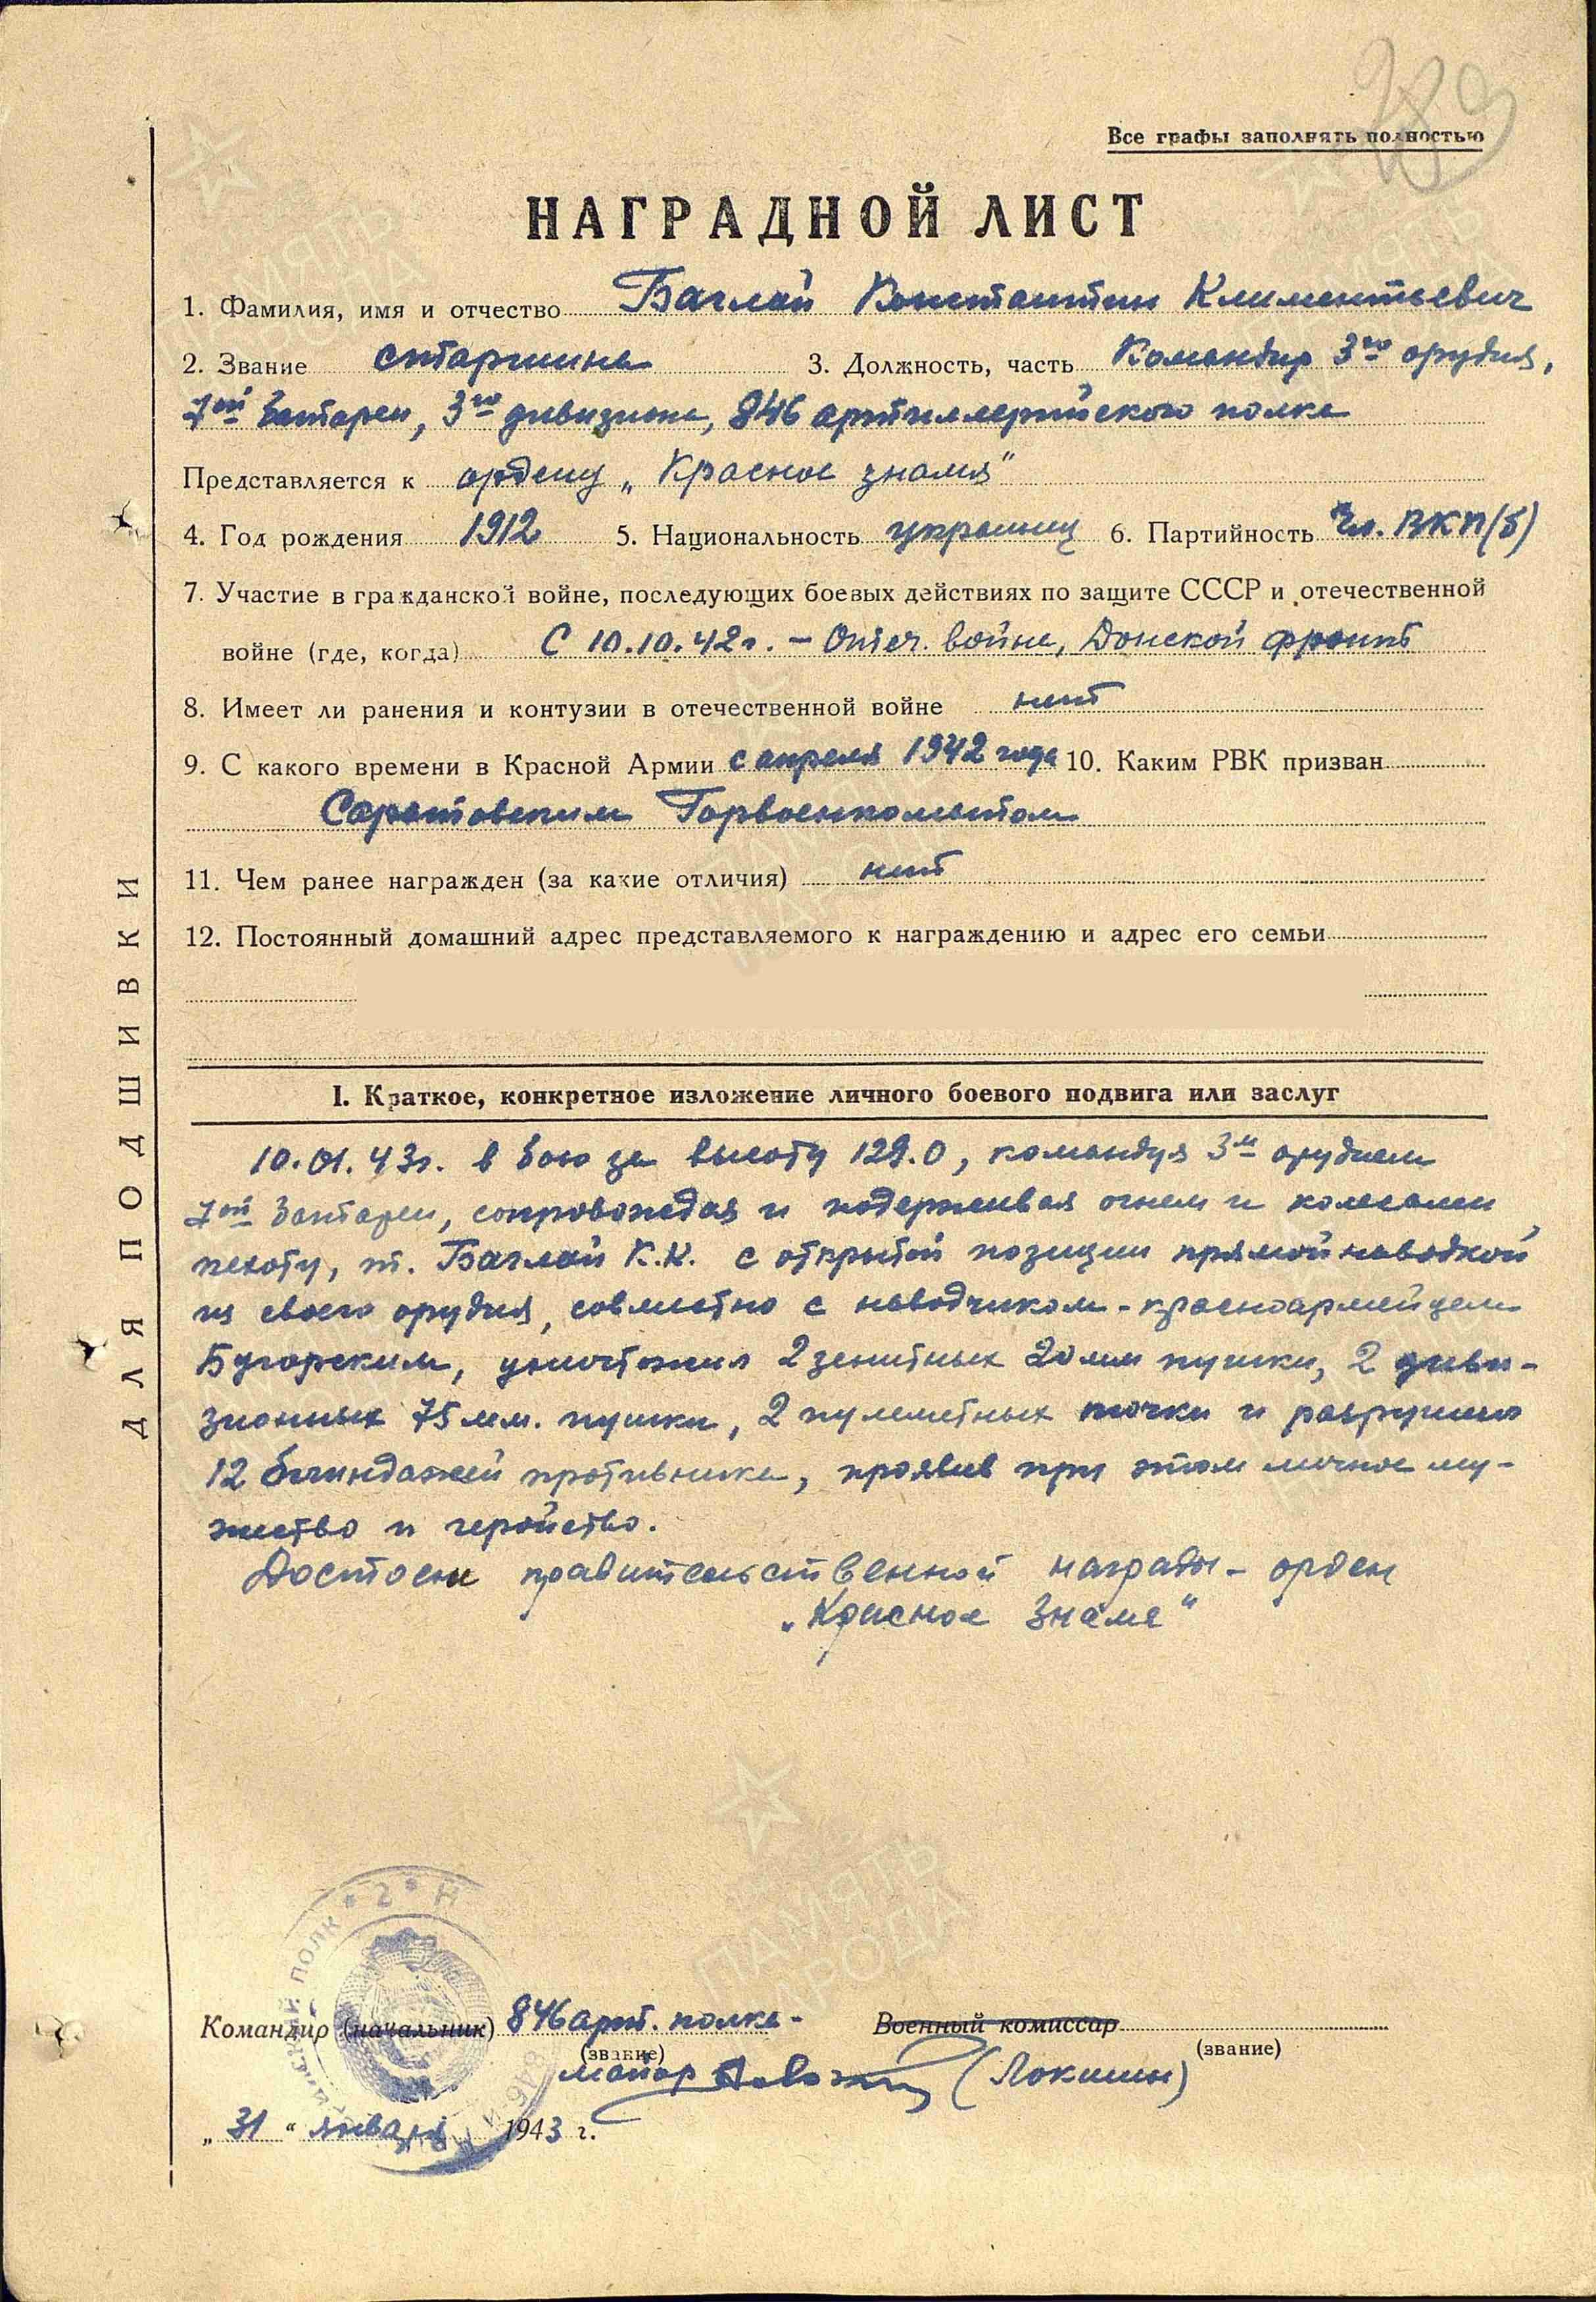 289
Все графы заполнять полностью
НАГРАДНОЙ ЛИСТ
1. Фамилия, имя и отчество Баглай Константин Климентьевич
2. Звание старшина 3. Должность, часть Командир 3го орудия,
7ой батареи, 3го дивизиона, 846 артиллерийского полка
Представляется к ордену „Красное знамя"
4. Год рождения 1912 5. Национальность украинец 6. Партийность Чл. ВКП(б)
7. Участие в гражданской войне, последующих боевых действиях по защите СССР и отечественной
войне (где, когда) С 10.10.42г. – Отеч. война, Донской фронт
8. Имеет ли ранения и контузии в отечественной войне нет
9. С какого времени в Красной Армии с апреля 1942 года 10. Каким РВК призван
Саратовским Горвоенкоматом
11. Чем ранее награжден (за какие отличия) нет
12. Постоянный домашний адрес представляемого к награждению и адрес его семьи
I. Краткое, конкретное изложение личного боевого подвига или заслуг
10.01.43г. в бою за высоту 129.0, командуя 3м орудием
7ой батареи, сопровождая и подерживая огнем и колесами
пехоту, т. Баглай К.К. с открытой позиции прямой наводкой
из своего орудия, совместно с наводчиком-красноармейцем
Бугорским, уничтожил 2 зенитных 20 мм пушки, 2 диви-
зионных 75 мм. пушки, 2 пулеметных точки и разрушил
12 блиндажей противника, проявив при этом личное му-
жество и геройство.
Достоен правительственной награды – орден
„Красное Знамя"
Командир (начальник) 846 арт. полка – Военный комиссар
(звание) (звание)
майор (Локшин)
„31" января 1943 г.
ДЛЯ ПОДШИВКИ
ПАМЯТЬ
НАРОДА